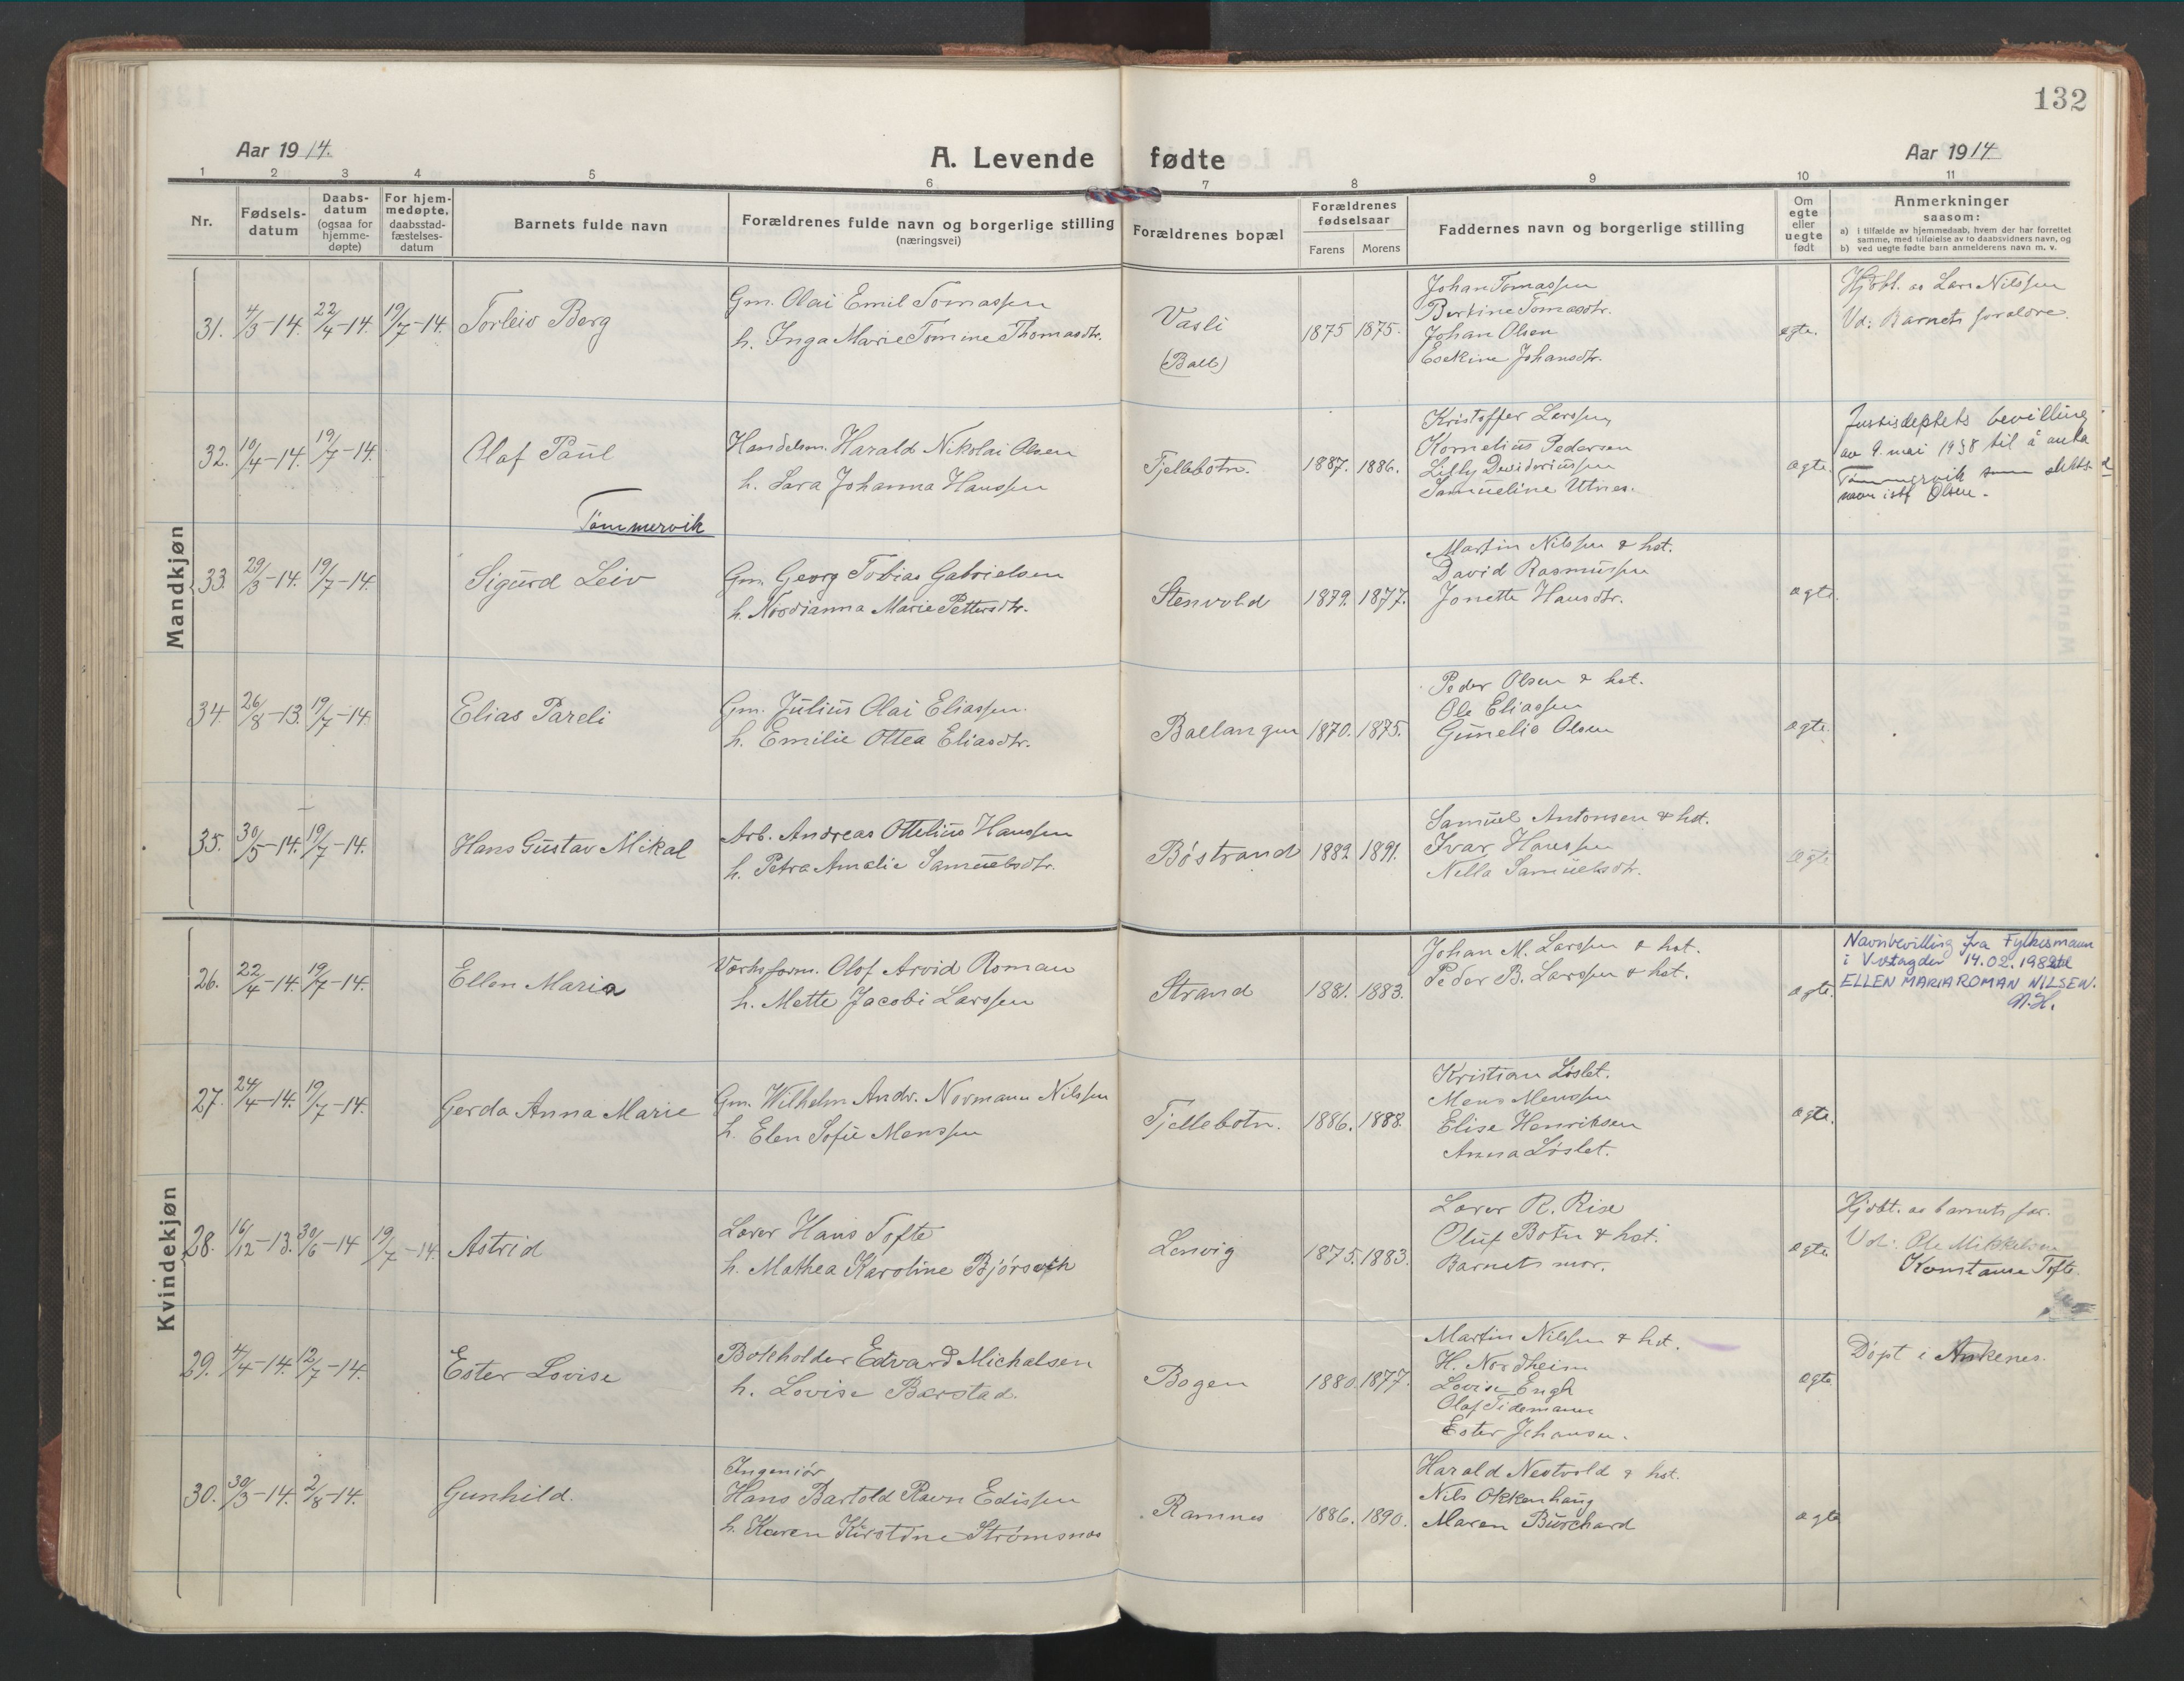 132
Aar 1914.
A. Levende fødte
Aar 1914
1 2 3 4 5 6 7 8 9 10 11
Nr.
Fødsels-
datum
Daabs-
datum
(ogsaa for
hjemme-
døpte)
For hjem-
medøpte.
daabsstad-
fæstelses-
datum
Barnets fulde navn
Forældrenes fulde navn og borgerlige stilling
(næringsvei)
Forældrenes bopæl
Forældrenes
fødselsaar
Farens Morens
Faddernes navn og borgerlige stilling
Om
egte
eller
uegte
født
Anmerkninger
saasom:
a) i tilfælde av hjemmedaab, hvem der har forrettet
samme, med tilføielse av to daabsvidners navn, og
b) ved uegte fødte barn anmelderens navn m. v.
Mandkjøn
31. 4/3-14. 22/4-14. 19/7-14. Torleiv Berg
Gm. Olai Emil Tomassen
h. Inga Marie Tomine Thomasdtr.
Vasli
(Ball)
1875 1875.
Johan Tomassen
Berkine Tomasdtr.
Johan Olsen
Eskine Johansdtr.
egte.
Hjdbt. av Lars Nilssen
Vd: Barnets foraldre.
32. 10/4-14. 19/7-14. Olaf Paul
Tømmervik
Handelsm. Harald Nikolai Olsen
h. Sara Johanna Hanssen
Fjellbotn. 1887. 1886.
Kristoffer Larssen
Kornelius Pedersen
Lilly Davidoriussen
Samueline Utnes.
agte.
Justisdeptets bevilling
av 9. mai 1938 til å anta
Tømmervik som slekts-
navn istf Olsen.
33. 29/3-14. 19/7-14. Sigurd Leiv
Gm. Georg Tobias Gabrielsen
h. Nordianna Marie Pettersdtr.
Stenvold 1879. 1877.
Martin Nilssen & hst.
David Rasmussen
Jonette Hansdtr.
agte.
34. 26/8-13. 19/7-14. Elias Pareli
Gm. Julius Olai Eliassen.
h. Emilie Ottea Eliasdtr.
Ballangen 1870. 1875.
Peder Olsen & hst.
Ole Eliassen
Gunelie Olsen
agte.
35. 30/5-14. 19/7-14. Hans Gustav Mikal
Arb. Andreas Ottelius Hanssen
h. Petra Amalie Samuelsdtr.
Bøstrand 1882 1891.
Samuel Antonsen & hst.
Ivar Hanssen
Nella Samuelsdtr.
agte
Kvindekjøn
26. 22/4-14. 19/7-14. Ellen Maria
Verksform. Olof Arvid Roman
h. Mette Jacobi Larssen
Strand 1881. 1883.
Johan M. Larssen & hst.
Peder B. Larssen & hst.
agte.
Navnbevilling fra Fylkesmann
i Vestagder 14.02.1982 til
ELLEN MARIA ROMAN NILSEN.
N.H.
27. 24/4-14. 19/7-14. Gerda Anna Marie
Gm. Wilhelm Andr. Normann Nilssen
h. Elen Sofie Menssen
Fjellebotn. 1886. 1888.
Kristian Løslet.
Mens Menssen
Elise Henriksen
Anna Løslet.
agte.
28. 16/12-13. 30/6-14 19/7-14. Astrid
Lærer Hans Tofte
h. Mathea Karoline Bjørsvik
Lenvig 1875. 1883.
Lærer R. Rise
Oluf Botn & hst.
Barnets mor.
agte.
Hjdbt. av barnets far.
Vd: Ole Mikkelsen
Konstanse Tofte.
29. 4/4-14. 12/7-14. Ester Lovise
Bokholder Edvard Michalsen
h. Lovise Barstad.
Bogen 1880. 1877.
Martin Nilssen & hst.
H. Nordheim
Lovise Engh
Olaf Tidemann
Ester Johansen.
agte
Døpt i Ankenes.
30. 30/3-14. 2/8-14. Gunhild.
Ingeniør
Hans Bartold Ravn Edissen
h. Karen Kirstine Strømsnes
Ramnes 1886. 1890.
Harald Nestvold & hst.
Nils Okkenhaug
Maren Burchard
agte